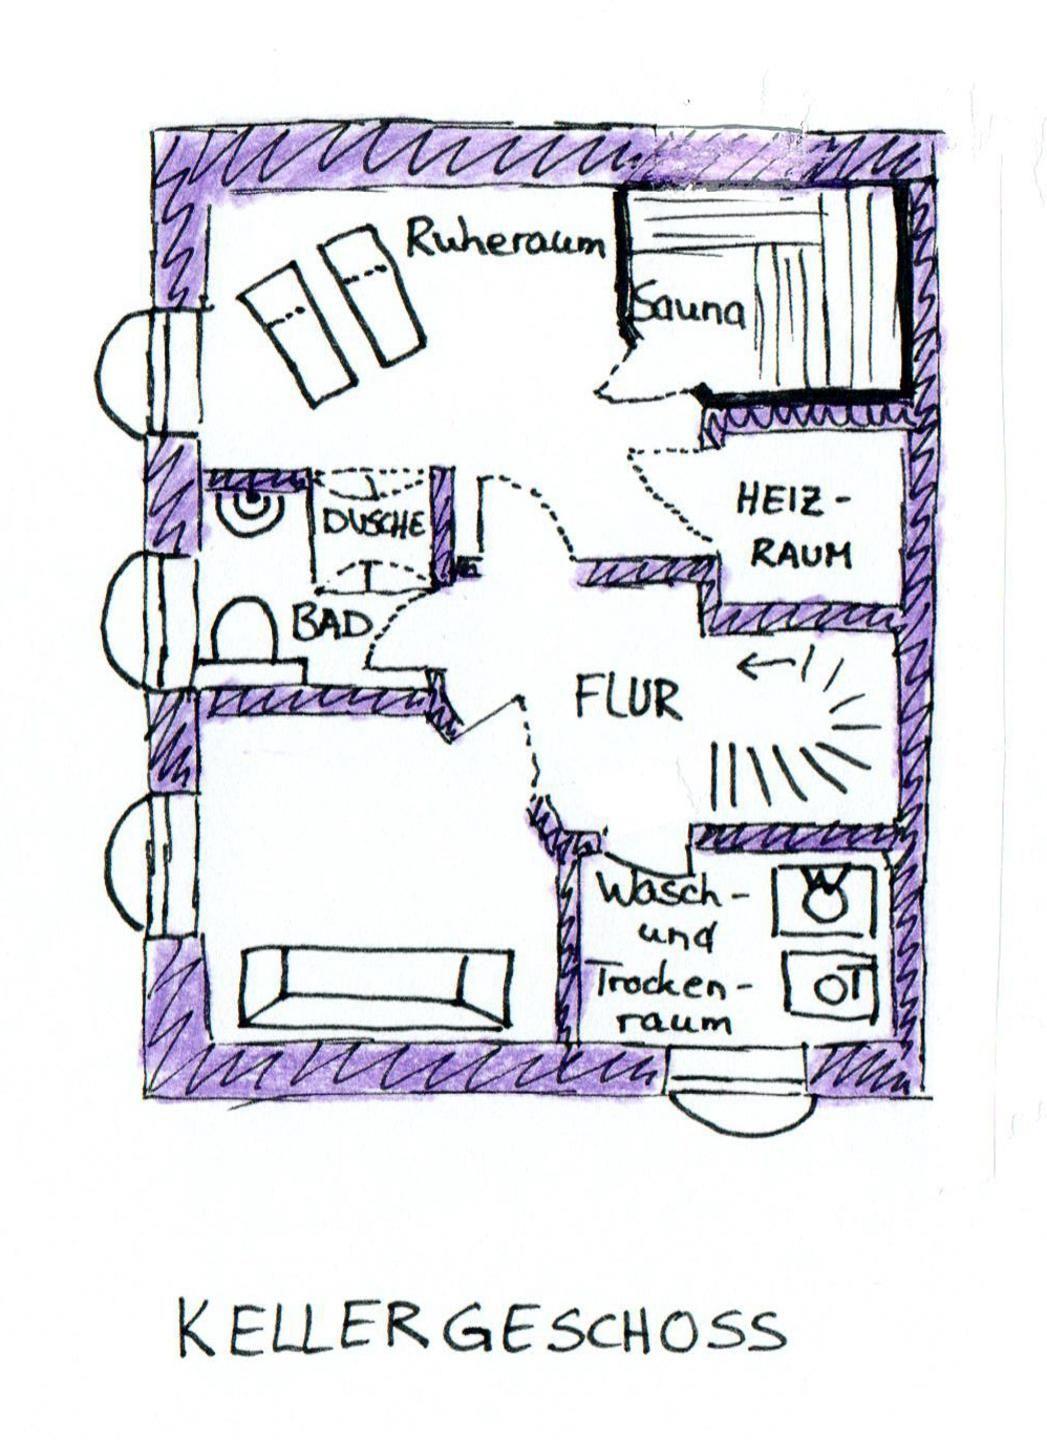 Ruheraum
Sauna
HEIZ-
RAUM
DUSCHE
BAD
FLUR
Wasch-
und
Trocken-
raum
W
T
KELLERGESCHOSS